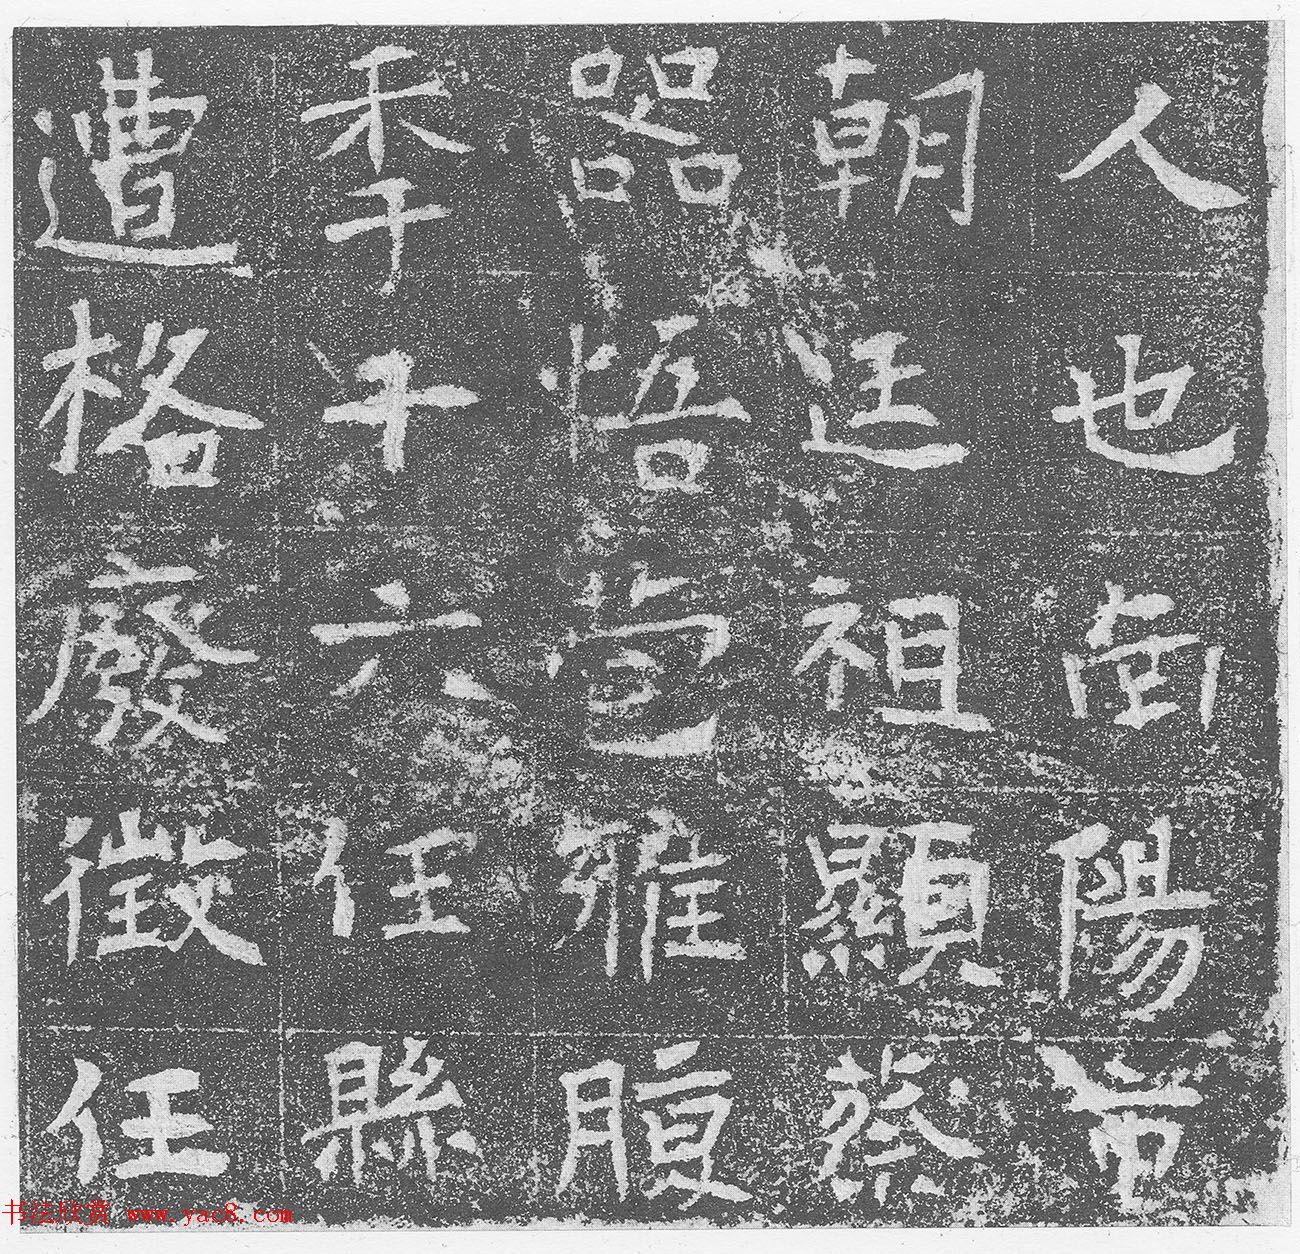 人也陽
朝廷祖顯蔡
器悟苞雅腹
秊十六任縣
遭格廢徵任
书法欣赏 www.yac8.com